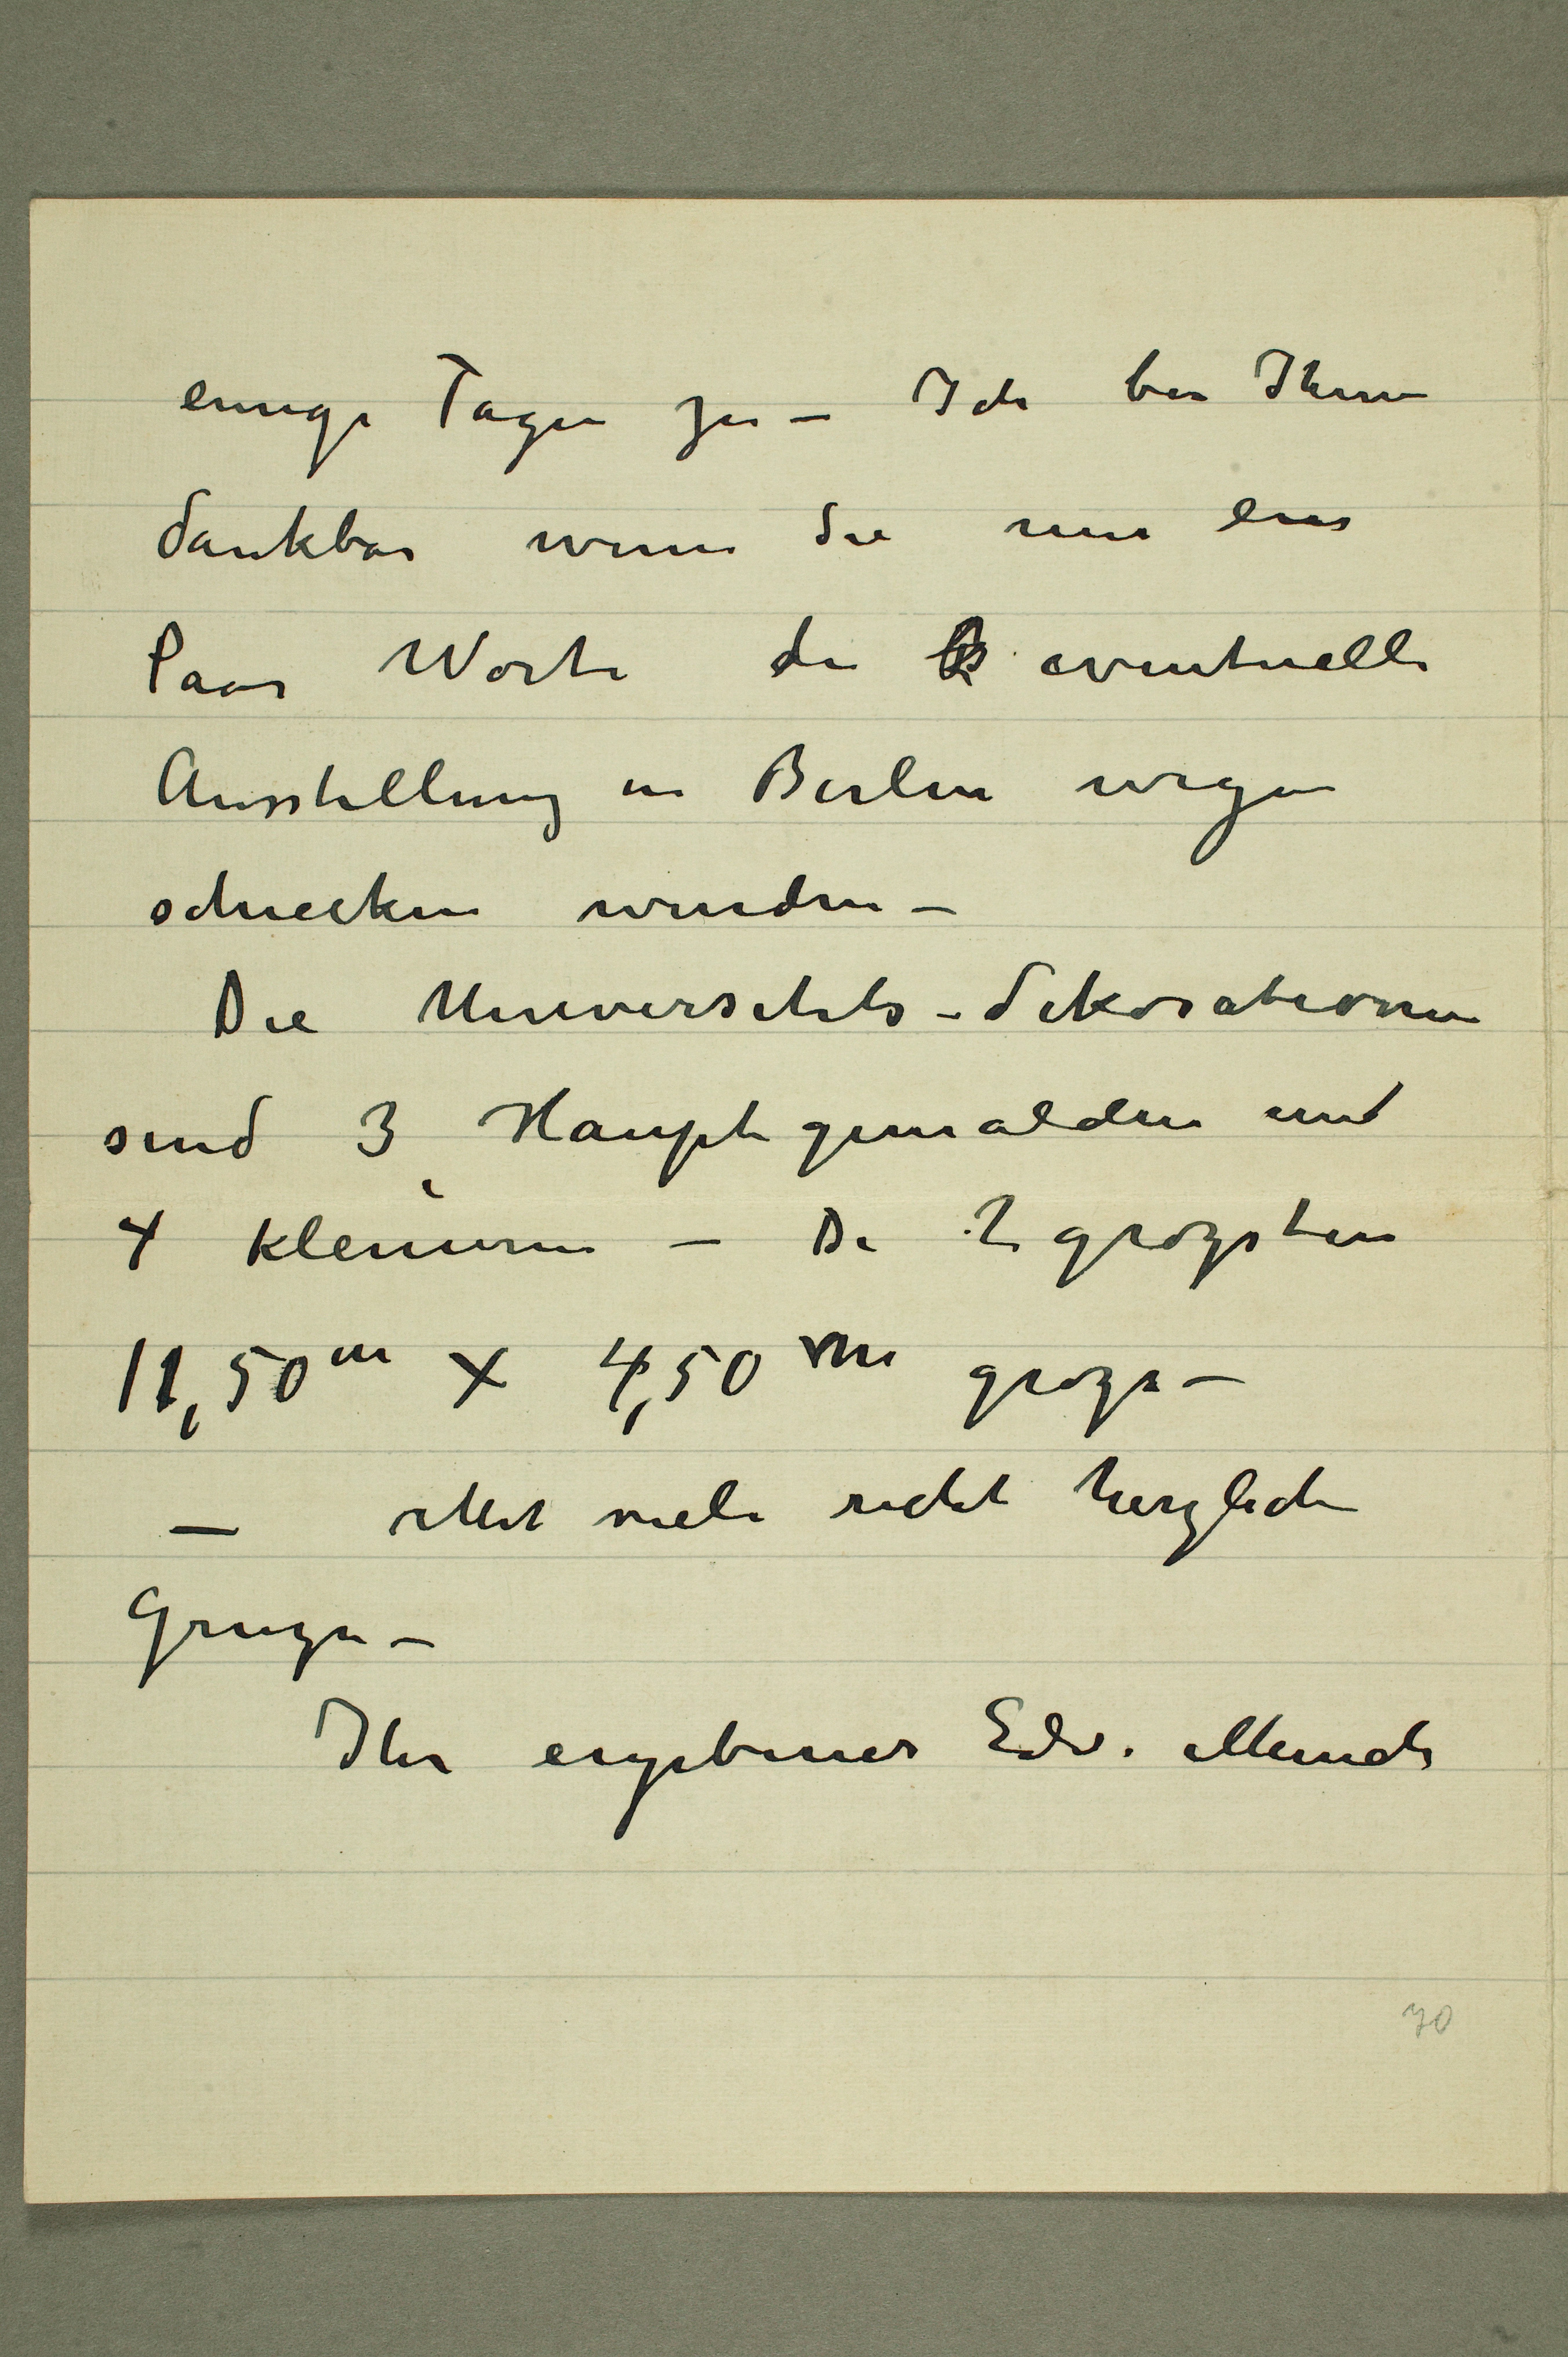 einige Tagen zu – Ich bin Ihnen
dankbar wenn Sie mir ein
Paar Worte die eventuelle
Ausstellung in Berlin wegen
schiecken wurden –
Die Universitets-dekorationen
sind 3 Hauptgemälden und
4 kleineren – Die 2 grozsten
11,50 m x 4,50 m groze –
– Mit viele recht herzliche
Gruze –
Ihr ergebener Edv. Munch
70